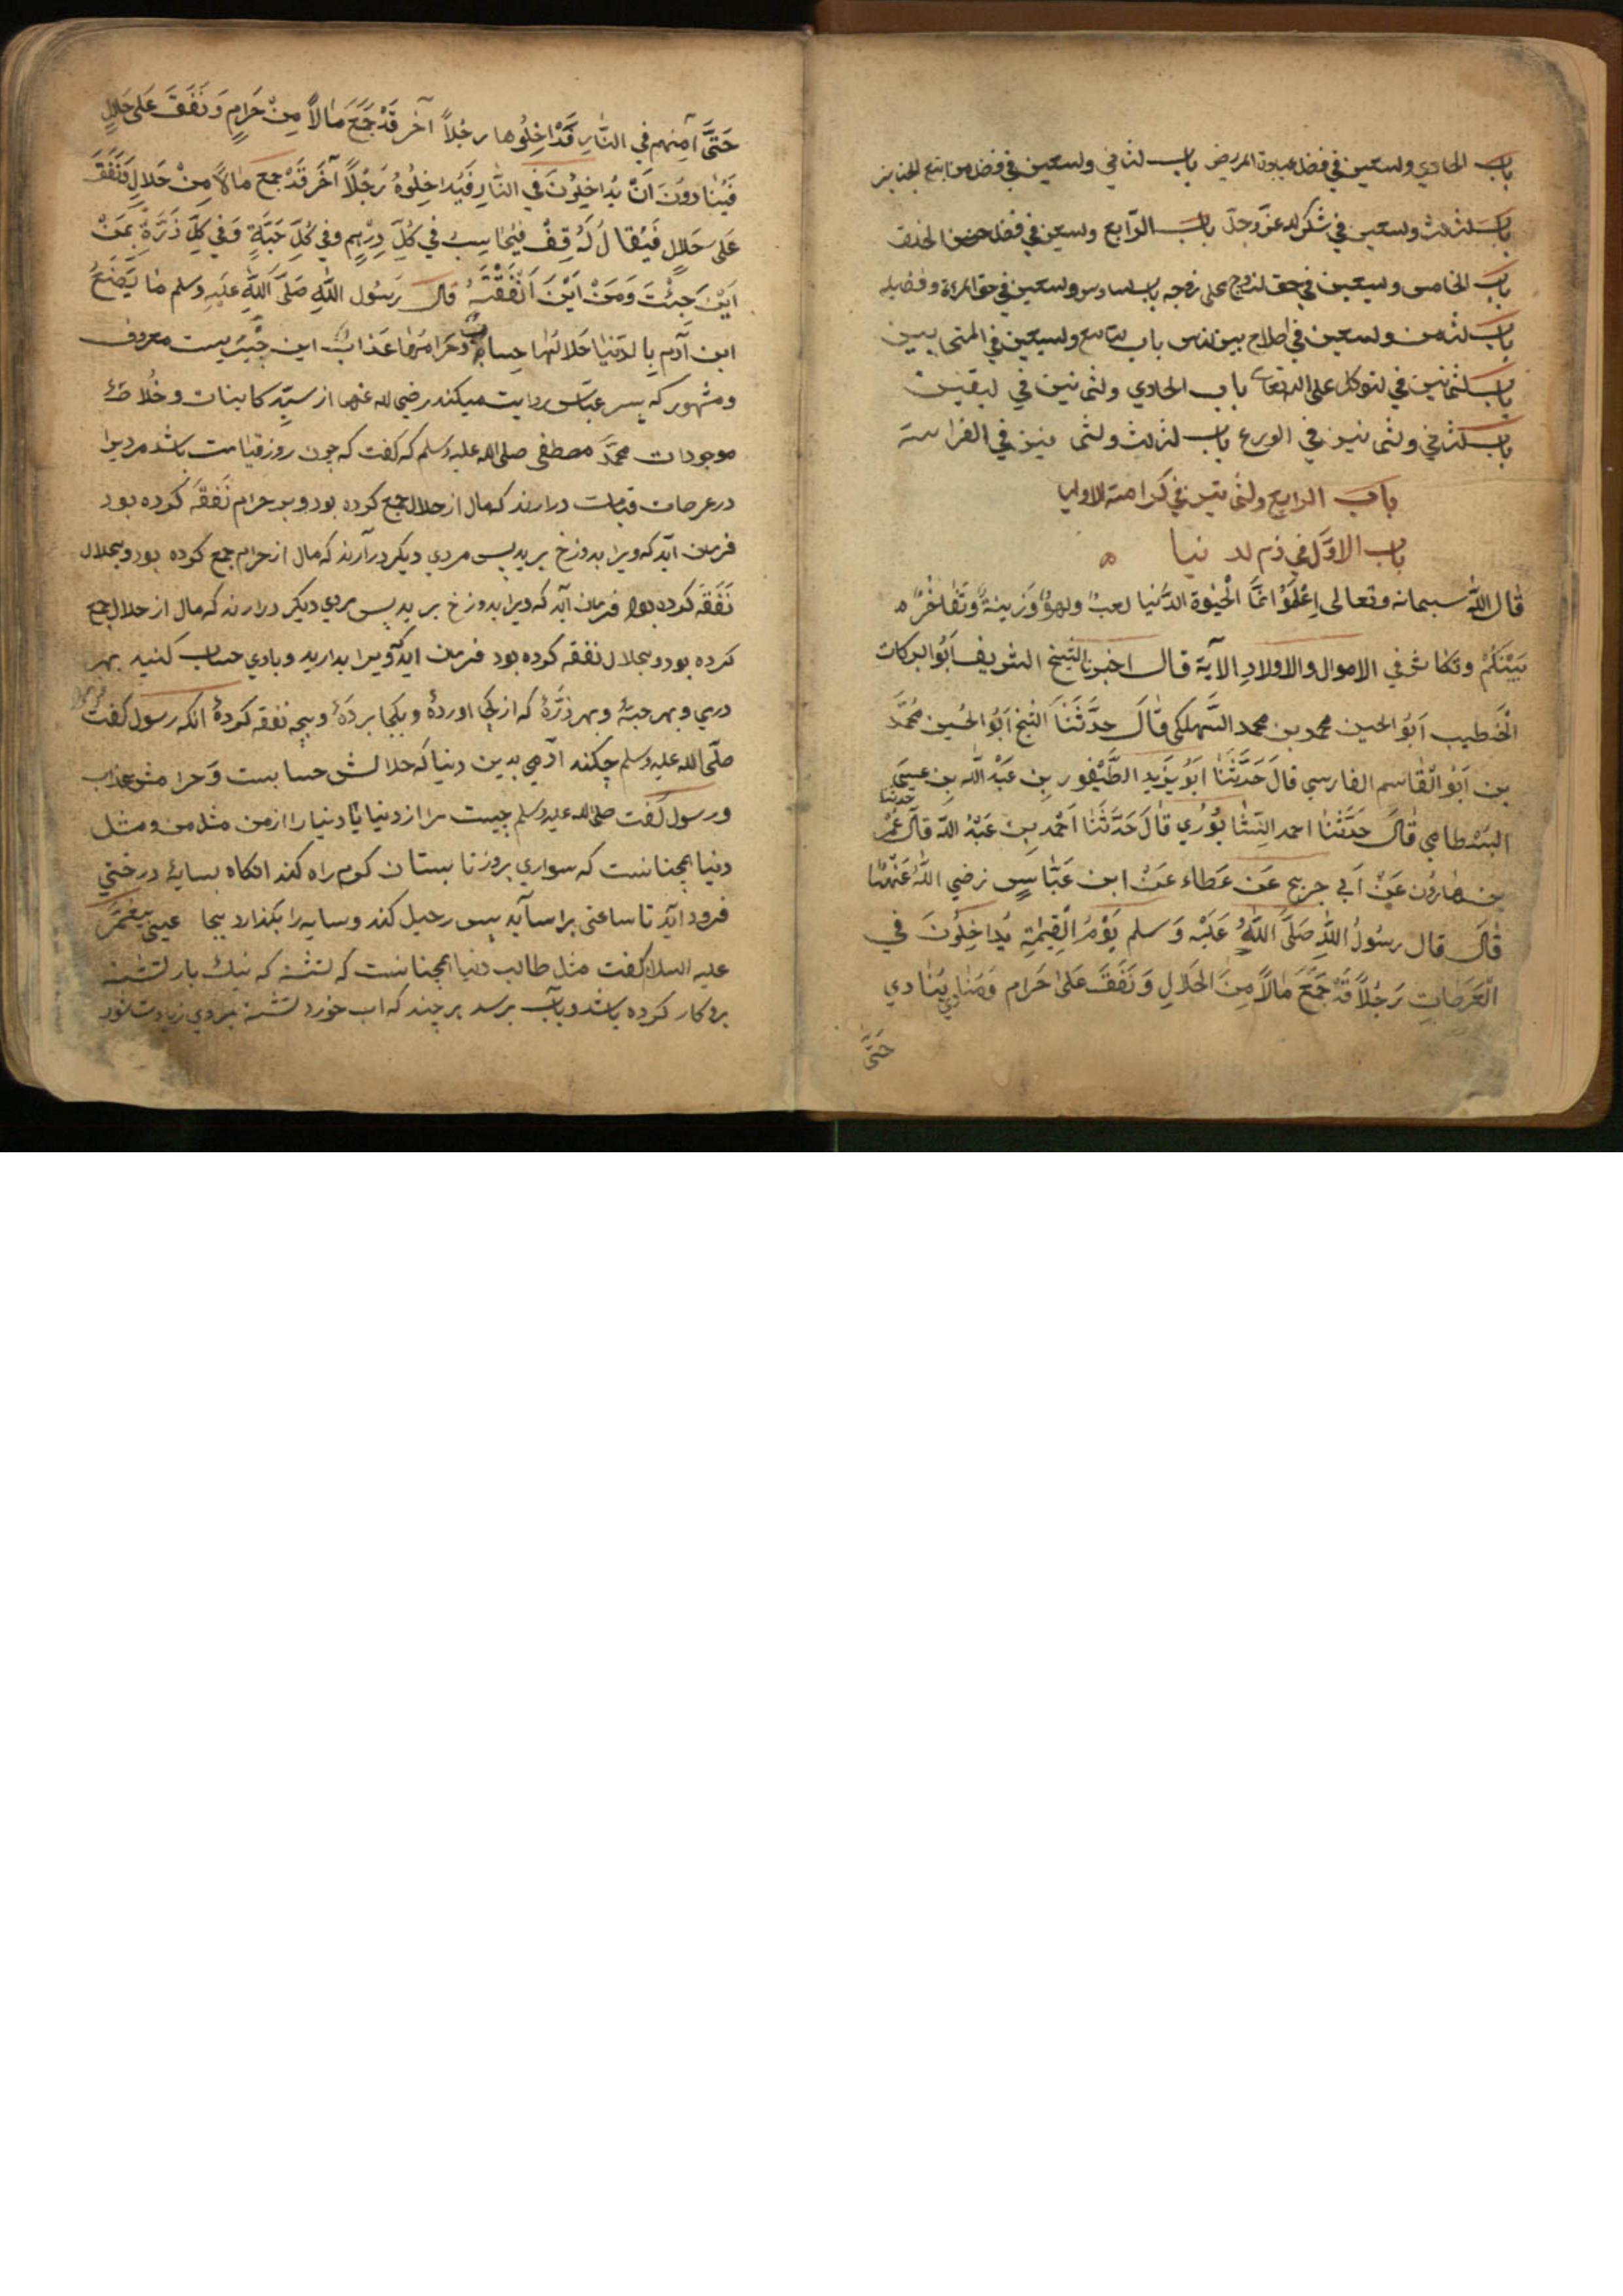 باب الحادي والسبعين في فضل عيادة المريض باب الثاني والسبعين في فضل من اتبع الجنايز
باب الثالث والسبعين في شكر الله عز وجل باب الرابع والسبعين في فضل حسن الخلق
باب الخامس والسبعين في حق الزوج على زوجه باب السادس والسبعين في حق المرءة وفضايله
باب الثامن والسبعين في اصلاح بين الناس باب التاسع والسبعين في المتحابين
باب الثمانين في التوكل على الله تعالى باب الحادي والثمانين في اليقين
باب الثاني والثمانين في الورع باب الثالث والثمانين في الفراسة
باب الرابع والثمانين في كرامة الاوليا
باب الاول في ذم الدنيا
قال الله سبحانه وتعالى اِعْلَمُوْا انَّمَا الْحَيٰوة الدُّنيا لعبٌ ولهوٌ وَزينةٌ وَتَفَاخُرٌ
بَيْنَكُمْ وتكاثر في الاموال والاولادِ الآية قال اخبرنا الشيخ الشريف ابُو البركات
الْخَطيب اَبُو الحسن محمد بن محمد السَّهلكي قالَ حدَّثَنَا الشيخ اَبُو الحُسين مُحمَّد
بن ابُو القَاسِم الفارسي قالَ حَدَّثَنَا ابُو يَزيد الطَّيْفور بن عَبْد الله بن عيسى
البسطامي قالَ حدَّثَنَا احمد النِّشَابُوري قالَ حَدَّثَنَا اَحْمد بن عَبْد الله قال حدثنا عُمَر
بن هارُون عَنْ اَبي جريج عَن عَطاء عَنْ ابن عَبَّاسٍ رضي اللهُ عَنْهُمَا
قالَ قال رسُولُ اللهِ صَلَّى اللهُ عَلَيْه وَسلم يَوْمُ الْقِيٰمَةِ يُدَاخِلُونَ في
الْعَرَصاتِ رَجُلاً قَدْ جَمَعَ مَالاً مِنَ الحَلالِ وَنَفَقَ عَلى حَرام وَمُنَادِي يُنَادي
حَتَّى
حَتَّى اَمِنهم في النَّارِ قَدْ اَخِلُوها رجُلاً آخر قَدْ جَمَعَ مَالاً مِنْ حَرامٍ وَنَفَقَ عَلى حَلالٍ
فَيُنَادونَ اَنْ يُدَاخِلُوْنَ في النَّارِ فَيُدَاخِلُوهُ رَجُلاً آخَرَ قَدْ جمع مَالاً مِنْ حَلالٍ وَنَفَقَ
عَلى حَلالٍ فَيُقالُ لَهُ قِفْ فَيُحَاسِبُ في كُلِّ دِرْهمٍ وفي كُلِّ حَبَّةٍ وَفي كلِّ ذَرَّةٍ بِمَنْ
اَيْنَ جِئْتَ وَمَنْ اَيْنَ اَنْفَقْتَهُ قالَ رَسُول اللهِ صَلَّى اللهُ عَلَيه وسلم مَا يَصْنَعُ
ابن آدم بِالدّنيا حَلالُها حِسابٌ وحَرامُها عَذابٌ اين خَبَريست معروف
ومشهور كه پسر عبّاس روايت ميكند رضي الله عنهما از سيّد كاينات وخلاصۀ
موجودات محمّد مصطفى صلى الله عليه وسلم كه كفت كه چون روز قيامت باشد مرديرا
در عرصات قيامت درارند كه مال از حلال جمع كرده بود وبر حرام نَفَقَه كرده بود
فرمان آيد كه ويرا بدوزخ بريد پس مردي ديكر درآرند كه مال از حرام جمع كوده بود وبحلال
نَفَقَه كرده بود فرمان آيد كه ويرا بدوزخ بريد پس مردي ديكر درارند كه مال از حلال جمع
كرده بود وبحلال نفقه كرده بود فرمان ايد كه ويرا بداريد وباوي حساب كنيد بهر
درمي وبهر حبّۀ وبهر ذرّۀ كه از كجا اوردۀ وبكجا بردۀ وبچه نفقه كردۀ انكه رسول كفت
صلّى الله عليه وسلم چكند ادمي بدين دنيا كه حلالش حسابست وَحرامش عذاب
ورسول كفت صلى الله عليه وسلم چيست مرا از دنيا يا دنيا را از من مثل من ومثل
دنيا همچنانست كه سواري بروز تابستان كرم راه كند انكاه بسايۀ درختي
فرود ايد تا ساعتى براسايد پس رحيل كند وسايه را بكذارد بجا عيسى پيغمبر
عليه السلام كفت مثل طالب دنيا همچنانست كه تشنه كه نيك بار تشنه
بروكار كرده باشد وبآب برسد هر چند كه اب خورد تشنه بروي زيادت شود